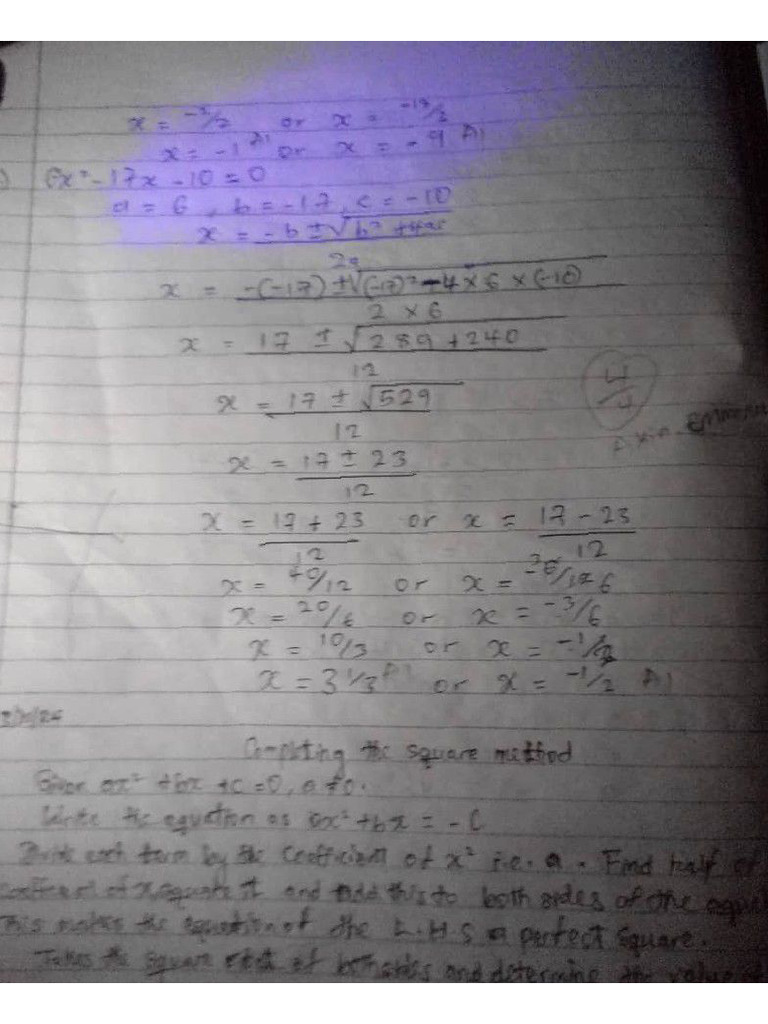 x = -2/2 or x = -18/2
x = -1 A1 or x = -9 A1
) 6x² - 17x - 10 = 0
a = 6, b = -17, c = -10
x = -b ± √b² +4ac
2a
x = -(-17) ± √(-17)² - 4 × 6 × (-10)
2 × 6
x = 17 ± √289 + 240
12
x = 17 ± √529
12
4/4
x = 17 ± 23
12
x = 17 + 23 or x = 17 - 23
12 12
x = 40/12 or x = -6/12
x = 20/6 or x = -3/6
x = 10/3 or x = -1/2
x = 3 1/3 A1 or x = -1/2 A1
Completing the square method
Given ax² + bx + c = 0, a ≠ 0.
Write the equation as ax² + bx = -c
Divide each term by the coefficient of x² i.e. a. Find half of
coefficient of x, square it and add this to both sides of the
This makes the equation of the L.H.S a perfect square.
Takes the square root of both sides and determine the value of